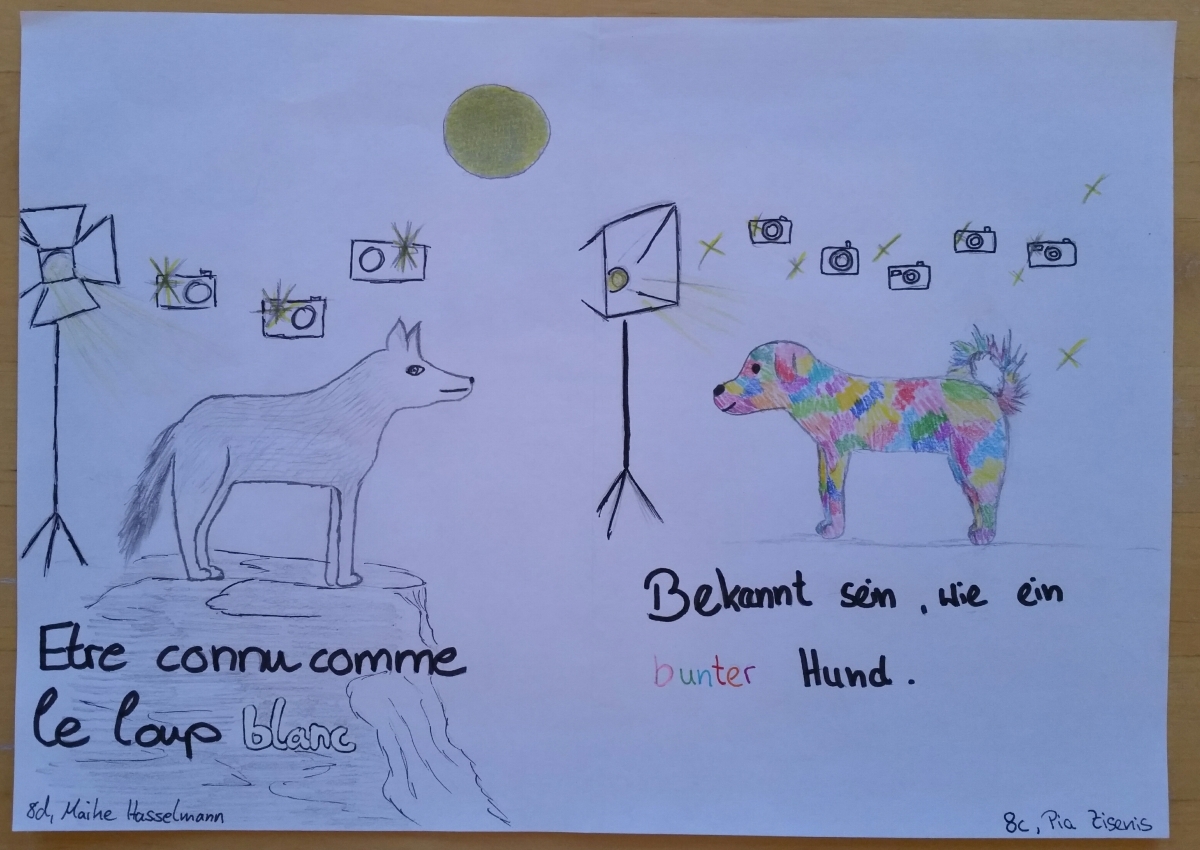 Etre connu comme
le loup blanc
Bekannt sein, wie ein
bunter Hund.
8d, Maike Hasselmann
8c, Pia Zisenis